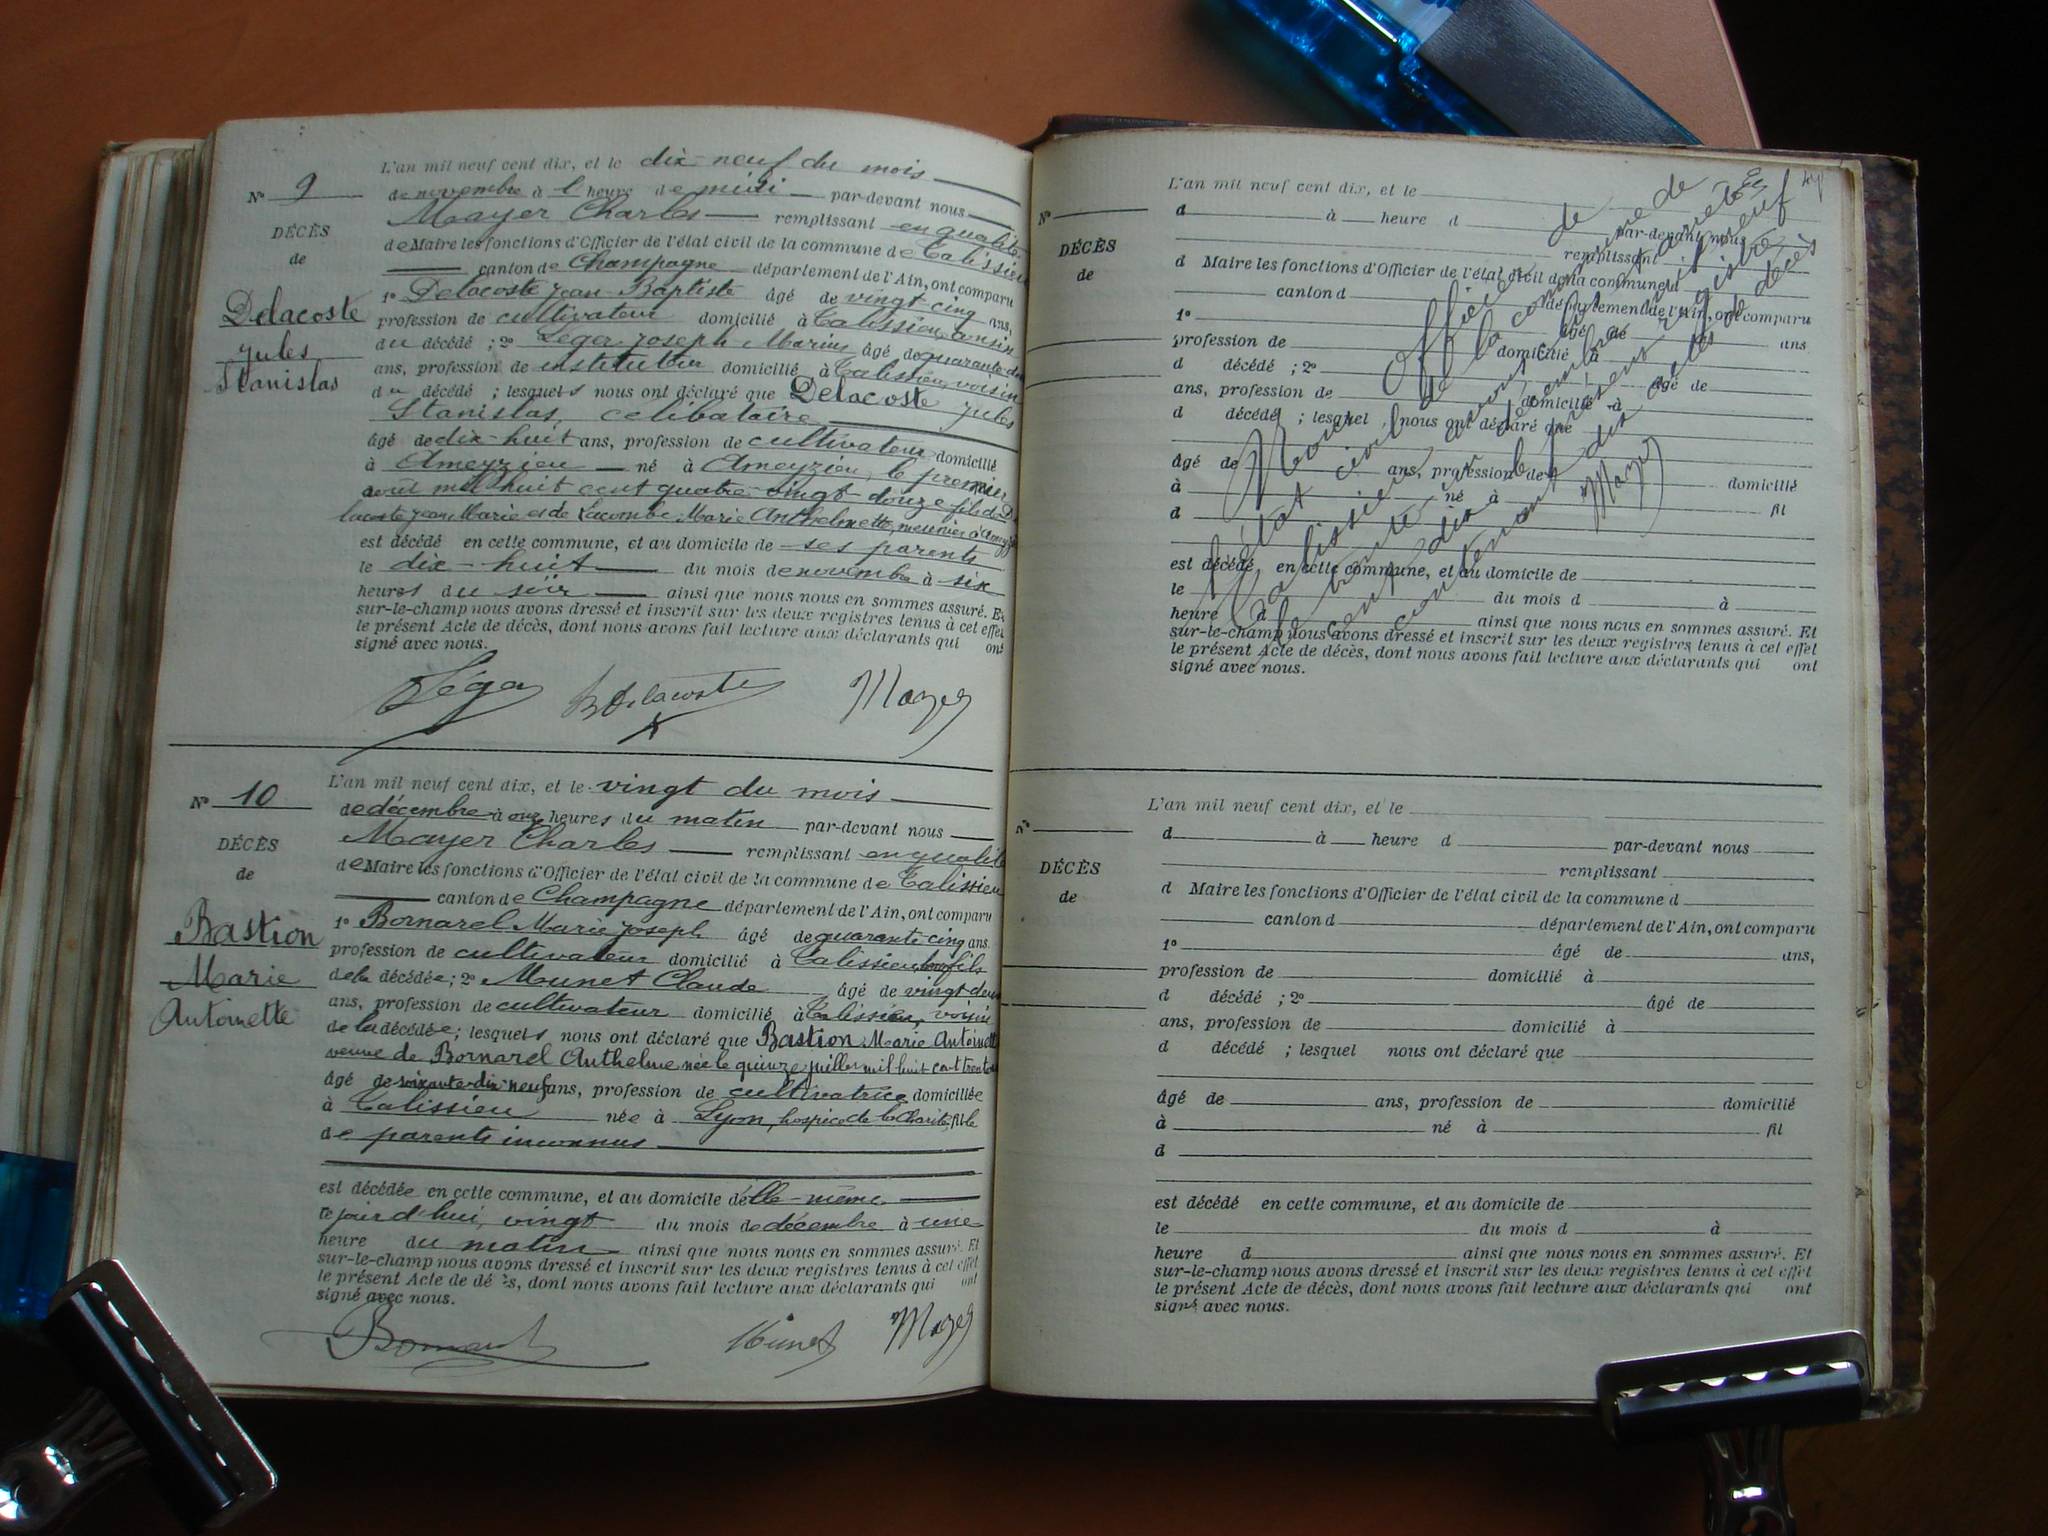 L'an mil neuf cent dix, et le dix-neuf du mois
N° 9
de novembre à l'heure de midi par-devant nous
Mayer Charles remplissant en qualité
DÉCÈS
de Maire les fonctions d'Officier de l'état civil de la commune de Talissieu
de
canton de Champagne département de l'Ain, ont comparu
1° Delacoste Jean Baptiste âgé de vingt-cinq ans,
Delacoste
profession de cultivateur domicilié à Talissieu, cousin
Jules
du décédé ; 2° Léger Joseph Marius âgé de quarante
Stanislas
ans, profession de instituteur domicilié à Talissieu, voisin
du décédé ; lesquels nous ont déclaré que Delacoste Jules
Stanislas, célibataire
âgé de dix-huit ans, profession de cultivateur domicilié
à Ameyzieu né à Ameyzieu, le premier
août mil huit cent quatre-vingt-douze fils de De
lacoste Jean Marie et de Lacombe Marie Anthelmette, meunier à
est décédé en cette commune, et au domicile de ses parents
le dix-huit du mois de novembre à six
heures du soir ainsi que nous nous en sommes assuré. Et
sur-le-champ nous avons dressé et inscrit sur les deux registres tenus à cet effet
le présent Acte de décès, dont nous avons fait lecture aux déclarants qui ont
signé avec nous.
Léger B Delacoste Mayer
L'an mil neuf cent dix, et le vingt du mois
N° 10
de décembre à onze heures du matin par-devant nous
Mayer Charles remplissant en qualité
DÉCÈS
de Maire les fonctions d'Officier de l'état civil de la commune de Talissieu
de
canton de Champagne département de l'Ain, ont comparu
Bastion
1° Bornarel Marie Joseph âgé de quarante-cinq ans
profession de cultivateur domicilié à Talissieu, fils
Marie
de la décédée ; 2° Munet Claude âgé de vingt-deux
Antoinette
ans, profession de cultivateur domicilié à Talissieu, voisin
de la décédée ; lesquels nous ont déclaré que Bastion Marie Antoinette
veuve de Bornarel Anthelme née le quinze juillet mil huit cent trente
âgé de soixante-dix-neuf ans, profession de cultivatrice domiciliée
à Talissieu née à Lyon, hospice de la Charité, fille
de parents inconnus
est décédée en cette commune, et au domicile d'elle-même
le jourd'hui, vingt du mois de décembre à une
heure du matin ainsi que nous nous en sommes assuré. Et
sur-le-champ nous avons dressé et inscrit sur les deux registres tenus à cet effet
le présent Acte de décès, dont nous avons fait lecture aux déclarants qui ont
signé avec nous.
Bornarel Munet Mayer
L'an mil neuf cent dix, et le
N°
d à heure d par-devant nous
remplissant
DÉCÈS
d Maire les fonctions d'Officier de l'état civil de la commune d
de
canton d département de l'Ain, ont comparu
1° âgé de
profession de domicilié à ans
d décédé ; 2° âgé de
ans, profession de domicilié à
d décédé ; lesquel nous ont déclaré que
âgé de ans, profession de domicilié
à né à
d fil
est décédé en cette commune, et au domicile de
le du mois d à
heure d ainsi que nous nous en sommes assuré. Et
sur-le-champ nous avons dressé et inscrit sur les deux registres tenus à cet effet
le présent Acte de décès, dont nous avons fait lecture aux déclarants qui ont
signé avec nous.
Nous Officier de
l'état civil de la commune de
Talissieu avons arrêté
le décembre mil neuf
cent dix le présent registre
contenant dix actes de décès
Mayer
L'an mil neuf cent dix, et le
N°
d à heure d par-devant nous
remplissant
DÉCÈS
d Maire les fonctions d'Officier de l'état civil de la commune d
de
canton d département de l'Ain, ont comparu
1° âgé de ans,
profession de domicilié à
d décédé ; 2° âgé de
ans, profession de domicilié à
d décédé ; lesquel nous ont déclaré que
âgé de ans, profession de domicilié
à né à fil
d
est décédé en cette commune, et au domicile de
le du mois d à
heure d ainsi que nous nous en sommes assuré. Et
sur-le-champ nous avons dressé et inscrit sur les deux registres tenus à cet effet
le présent Acte de décès, dont nous avons fait lecture aux déclarants qui ont
signé avec nous.